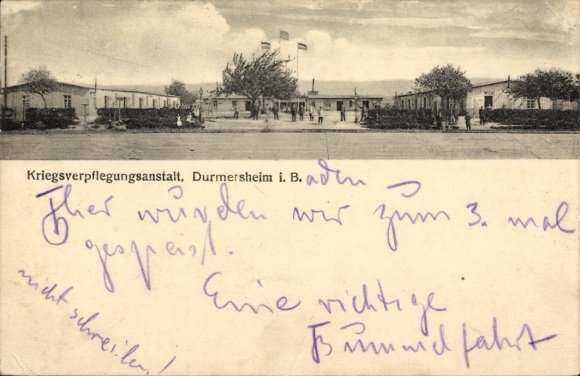 Kriegsverpflegungsanstalt, Durmersheim i. B.aden
Hier wurden wir zum 3. mal
gespeist.
Eine richtige
Bummelfahrt
nicht schreiben!